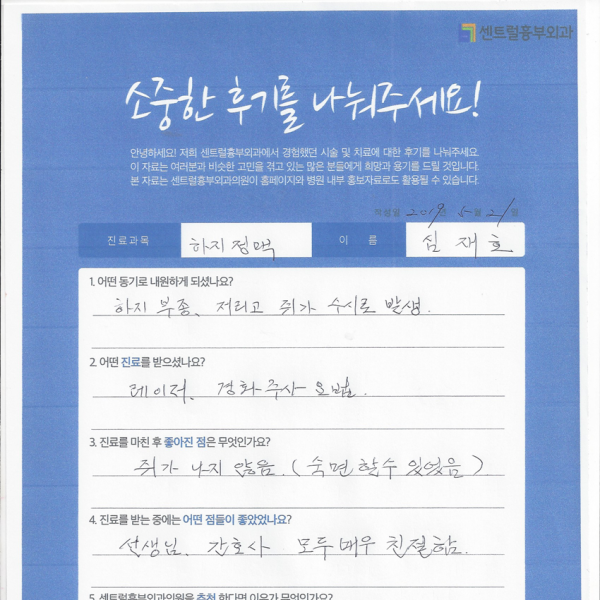 센트럴흉부외과
소중한 후기를 나눠주세요!
안녕하세요! 저희 센트럴흉부외과에서 경험했던 시술 및 치료에 대한 후기를 나눠주세요.
이 자료는 여러분과 비슷한 고민을 겪고 있는 많은 분들에게 희망과 용기를 드릴 것입니다.
본 자료는 센트럴흉부외과의원이 홈페이지와 병원 내부 홍보자료로도 활용될 수 있습니다.
작성일 2019년 5월 21일
진료과목 하지정맥 이 름 심재호
1. 어떤 동기로 내원하게 되셨나요?
하지 부종, 저리고 쥐가 수시로 발생.
2. 어떤 진료를 받으셨나요?
레이저, 경화주사 요법.
3. 진료를 마친 후 좋아진 점은 무엇인가요?
쥐가 나지 않음. (숙면 할수 있었음).
4. 진료를 받는 중에는 어떤 점들이 좋았었나요?
선생님, 간호사 모두 매우 친절함.
5. 센트럴흉부외과의원을 추천 한다면 이유가 무엇인가요?